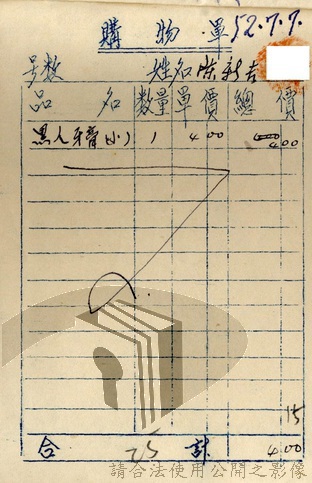 購物單 52.7.7.
号数 姓名 陳新吉
品名 数量 單價 總價
黒人牙膏(小) 1 4 00 4 00
15
合計 4.00
請合法使用公開之影像